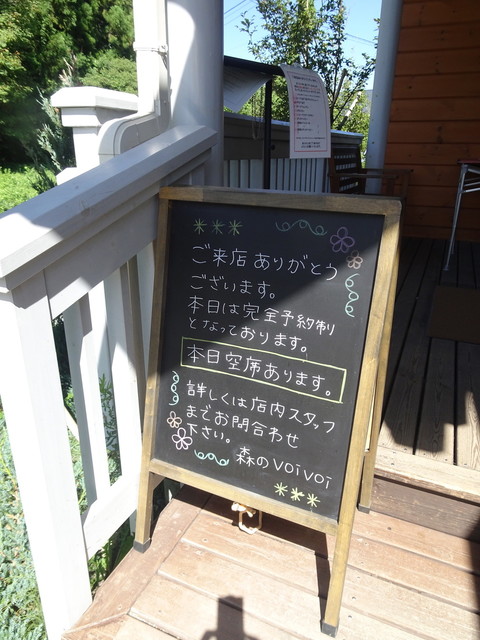 ご来店ありがとう
ございます。
本日は完全予約制
となっております。
本日空席あります。
詳しくは店内スタッフ
までお問合わせ
下さい。
森のvoivoi